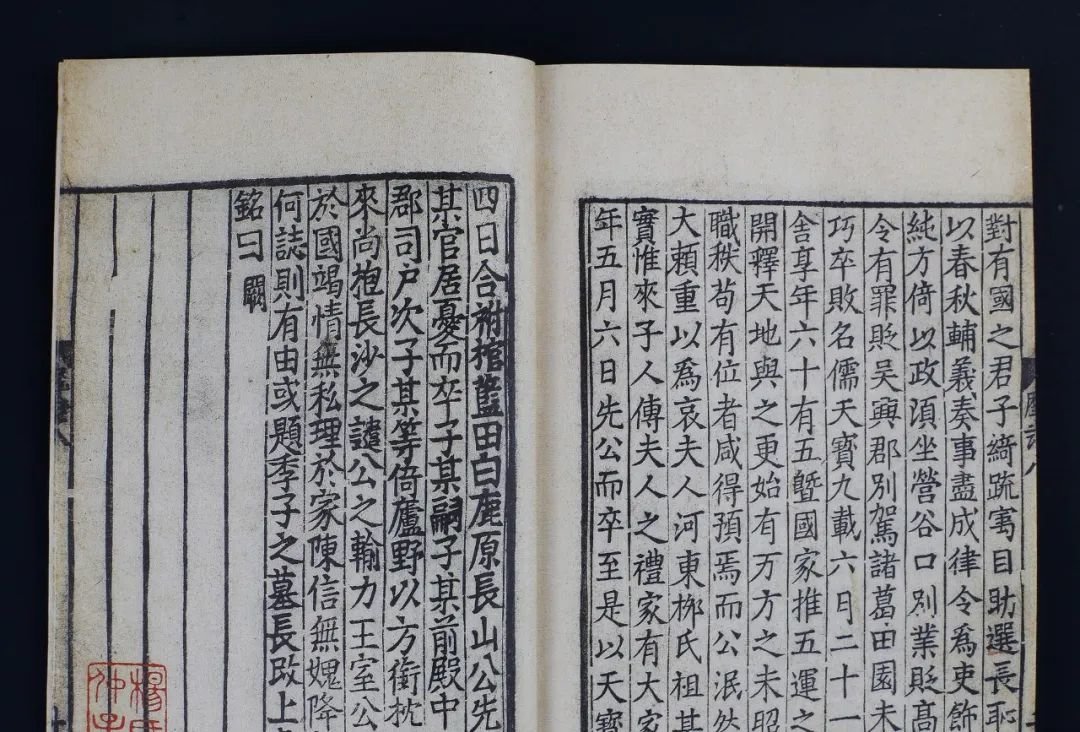 對有國之君子綺疏寓目助選長恥
以春秋輔義奏事盡成律令為吏飾
純方倚以政湏坐營谷口別業貶高
令有罪貶吳興郡別駕諸葛田園未
巧卒敗名儒天寶九載六日二十一
舍享年六十有五曁國家推五運之
開釋天地與之更始有万方之未昭
職秩苟有位者咸得預焉而公泯然
大賴重以為哀夫人河東栁氏祖某
實惟來子人傳夫人之禮家有大家
年五月六日先公而卒至是以天寶
四日合祔棺藍田白鹿原長山公先
某官居憂而卒子某嗣子某前殿中
郡司户次子某等倚廬野以方銜枕
來尚抱長沙之譴公之輸力王室公
於國竭情無私理於家陳信無媿降
何誌則有由或題季子之墓長改上
銘曰 闕